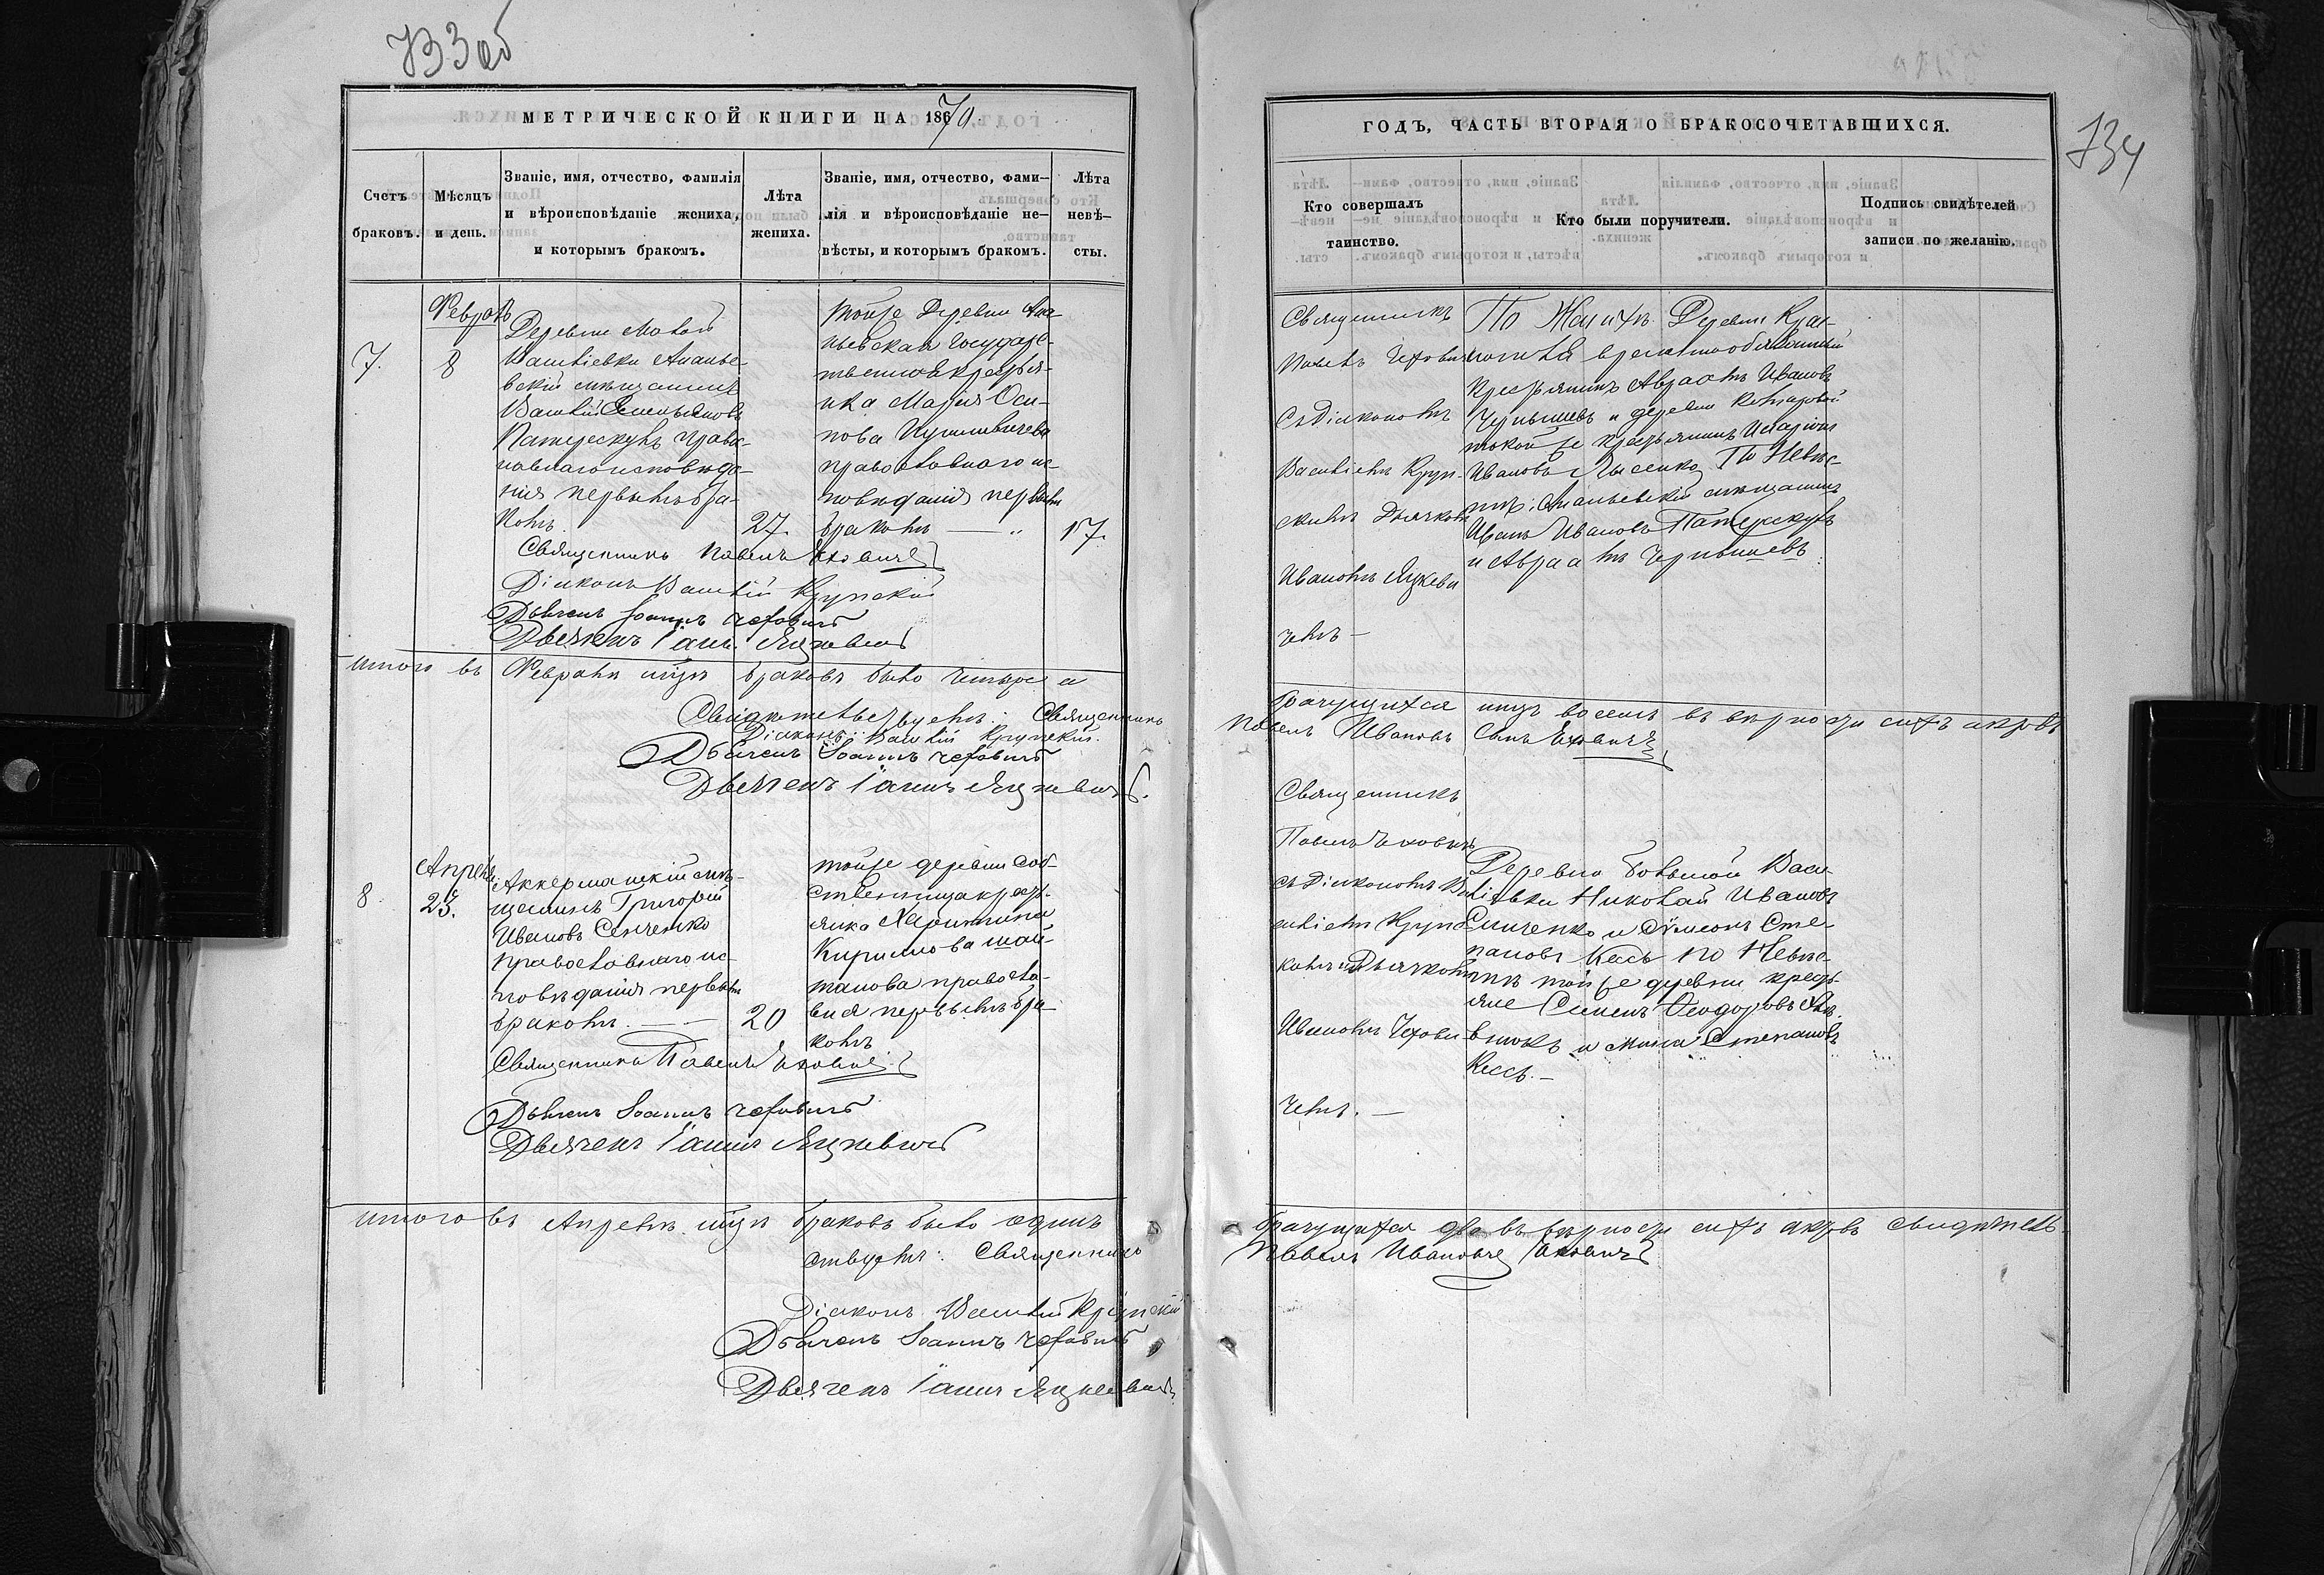 733 об
МЕТРИЧЕСКОЙ КНИГИ НА 1870
Счетъ браковъ.
Мѣсяцъ и день.
Званіе, имя, отчество, фамилія
и вѣроисповѣданіе жениха,
и которымъ бракомъ.
Лѣта
жениха.
Званіе, имя, отчество, фами-
лія и вѣроисповѣданіе не-
вѣсты, и которымъ бракомъ.
Лѣта
невѣ-
сты.
7.
Февраль
8
Деревни Малой
Василіевки Ананье-
вскій мѣщанинъ
Василій
Патерескулъ право-
славнаго исповѣда-
нія первымъ бра-
комъ.
27.
тойже деревни Ана-
ньевская Государс-
твенная крестья-
нка Марія Оси-
пова
православнаго ис-
повѣданія первымъ
бракомъ — „
17.
Священникъ Павелъ Чеховичъ
Діаконъ Василій Крупскій
Дьячекъ Іоаннъ Чеховичъ
Дьячекъ Іаннъ Яцкевичъ
Итого въ Февралѣ мцѣ браковъ было четыре а
Свидѣтельствуемъ: Священникъ
Діаконъ: Василій Крупскій.
Дьячекъ Іоаннъ Чеховичъ
Дьячекъ Іаннъ Яцкевичъ.
8
Апрель
23.
Аккерманскій мѣ-
щанинъ Григорій
Ивановъ Сенченко
православнаго ис-
повѣданія первымъ
бракомъ. —
20
тойже деревни соб-
ственница крест.
янка Харитина
Кирилова шай-
танова правосла-
вная первымъ бра-
комъ
Священникъ Павелъ Чеховичъ
Дьячекъ Іоаннъ Чеховичъ
Дьячекъ Іаннъ Яцкевичъ
Итого въ Апрелѣ мцѣ браковъ было одинъ
ствуемъ: Священникъ
Діаконъ Василій Крупскій
Дьячекъ Іоаннъ Чеховичъ
Дьячекъ Іаннъ Яцкевичъ
734
ГОДЪ, ЧАСТЬ ВТОРАЯ О БРАКОСОЧЕТАВШИХСЯ.
Кто совершалъ
таинство.
Кто были поручители.
Подпись свидѣтелей
записи по желанію.
Священникъ
Павелъ Чехович
Съ Діакономъ
Василіемъ Круп-
скимъ Дьячкомъ
Иваномъ Яцкеви
чемъ —
По Женихѣ Деревни
временнообязанный
Крестьянинъ Авраамъ Ивановъ
Чернышевъ и деревни Комаровой
такой же крестьянинъ Иларіонъ
Ивановъ Лысенко По Невѣс-
тѣ: Ананьевскій мѣщанинъ
Иванъ Ивановъ Патерескулъ
и Авраамъ Чернышевъ
брачущихся лицъ восемь въ вѣрности сихъ актовъ
Павелъ Ивановъ Сынъ Чеховичъ
Священникъ
Павелъ Чеховичъ
съ Діакономъ Ва
силіемъ Крупс
кимъ и Дьячкомъ
Иваномъ Чехови
чемъ. —
Деревни Большой Васи-
лiевки Николай Ивановъ
Сенченко и Сѵмеонъ Сте-
пановъ Кесь По Невѣс-
тѣ той же деревни кресть-
яне Семенъ Ѳеодоровъ
и Степановъ
Кесь. —
брачущихся два въ вѣрности сихъ актовъ свидѣтель-
Павелъ Ивановъ Чеховичъ